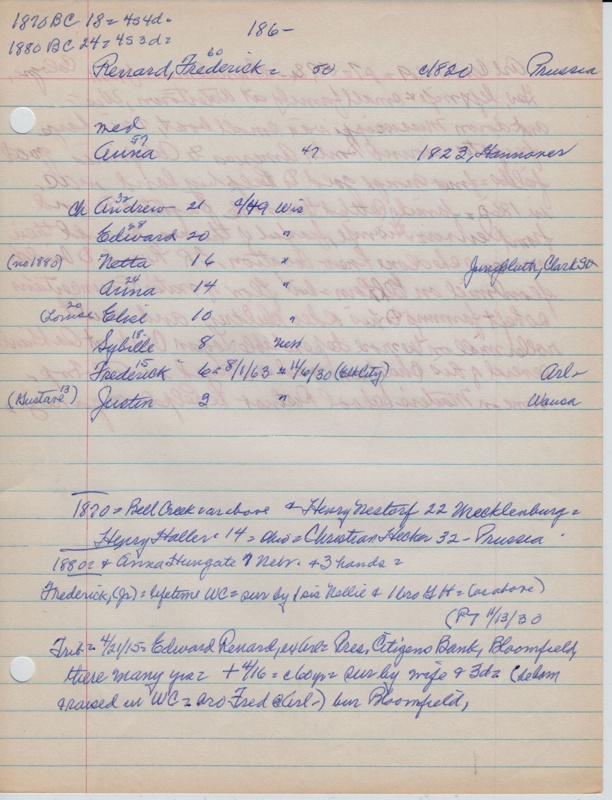 1870 BC 18= 454d=
1880 BC 24= 453d=
186-
60
Renard, Frederick = 50 c1820 Prussia
med
57
Anna 47 1823, Hannover
32
Ch Andrew 21 c/49 Wis
28
Edward 20 "
(no 1880) Netta 16 " Jungbluth, Clark
24
Anna 14 "
20
(Louise) Elise 10 "
18-
Sybille 8 Neb
15
Frederick 6= 8/1/63 = 4/6/30 Arl-
13
(Gustave) Justin 2 " Wausa
1870 = Bell Creek = as above & Henry Nestorf 22 Mecklenburg =
Henry Haller = 14 = Ohio = Christian Hecker 32 - Prussia
1880= & Anna Hungate 9 Nebr. & 3 hands =
Frederick, (Jr) = lifetime WC = sur by 1 sis Nellie & 1 bro (as above)
(PT 4/13/30
Trib = 4/21/15 = Edward Renard, Pres, Citizens Bank, Bloomfield,
there many yrs = + 4/16 = c60yr = sur by wife & 3d =
& raised in WC = bro Fred @ Arl-) bur Bloomfield,